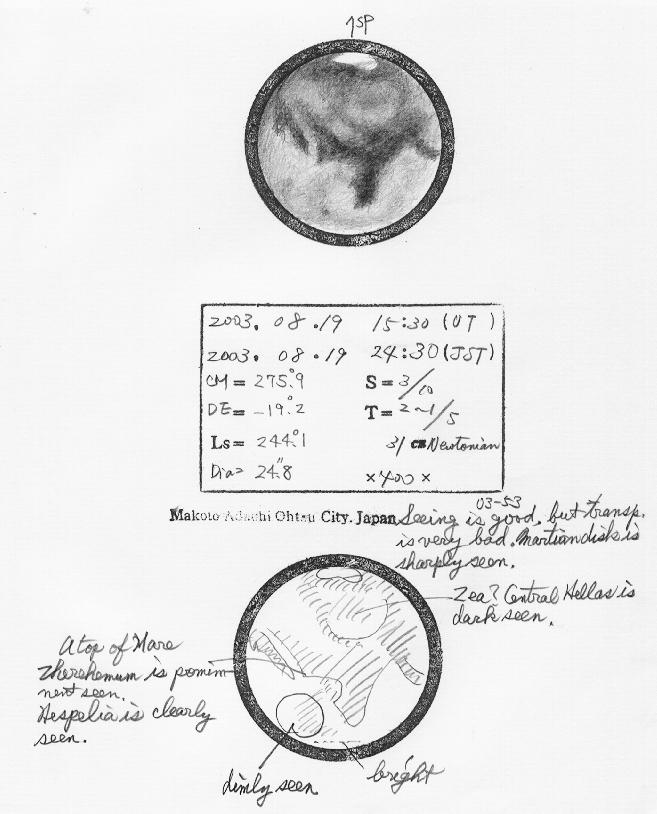 ↑SP
2003. 08 .19 15:30 (UT)
2003. 08 .19 24:30 (JST)
CM= 275.°9 S=3/10
DE= -19.°2 T=2~1/5
Ls= 244.°1 31 cm Newtonian
Dia= 24."8 ×400×
03-53
Makoto Adachi Ohtsu City. Japan
Seeing is good, but transp.
is very bad. Martian disk is
sharply seen.
Zea? Central Hellas is
dark seen.
A top of Mare
Therehemum is promim
nent seen.
Hespelia is clearly
seen.
dimly seen
bright